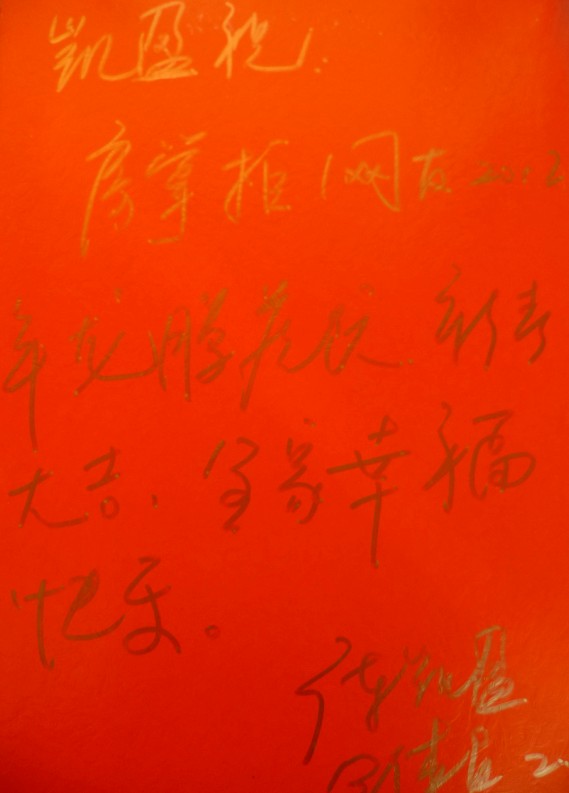 凯盈祝:
房掌柜网友2012
年龙腾虎跃.新春
大吉.全家幸福
快乐。
凯盈